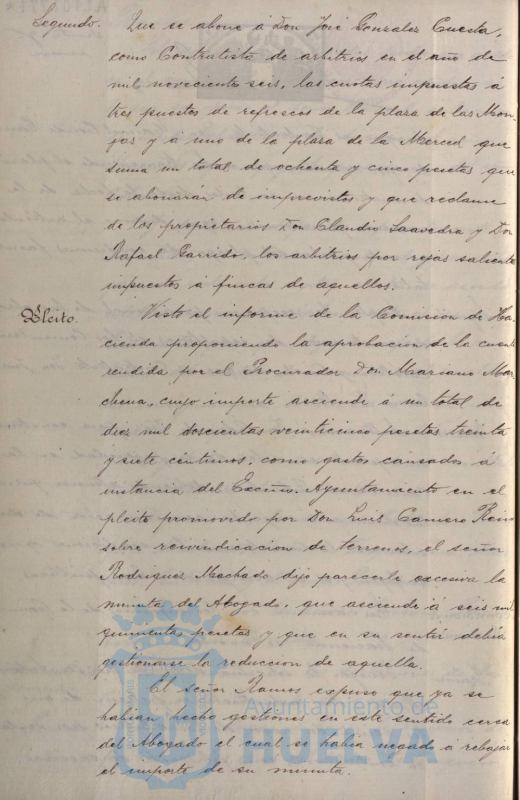 Segundo. Que se abone á Don José Gonzalez Cuesta,
como Contratista de arbitrios en el año de
mil novecientos seis, las cuotas impuestas á
tres puestos de refrescos de la plaza de las Mon-
jas y á uno de la plaza de la Merced que
suma un total de ochenta y cinco pesetas que
se abonarán de imprevistos y que reclame
de los propietarios Don Claudio Saavedra y Don
Rafael Garrido, los arbitrios por rejas saliente
impuestos á fincas de aquellos.
Pleito. Visto el informe de la Comision de Ha-
cienda proponiendo la aprobacion de la cuenta
rendida por el Procurador Don Mariano Mar-
chena, cuyo importe asciende á un total de
diez mil doscientas veinticinco pesetas treinta
y siete céntimos, como gastos causados á
instancia del Excmo. Ayuntamiento en el
pleito promovido por Don Luis Camero
sobre reivindicacion de terrenos, el señor
Rodriguez Machado dijo parecerle excesiva la
minuta del Abogado, que asciende á seis mil
quinientas pesetas y que en su sentir debia
gestionarse la reduccion de aquella.
El señor Ramos expuso que ya se
habian hecho gestiones en este sentido cerca
del Abogado el cual se habia negado á rebajar
el importe de su minuta.
Ayuntamiento de
HUELVA